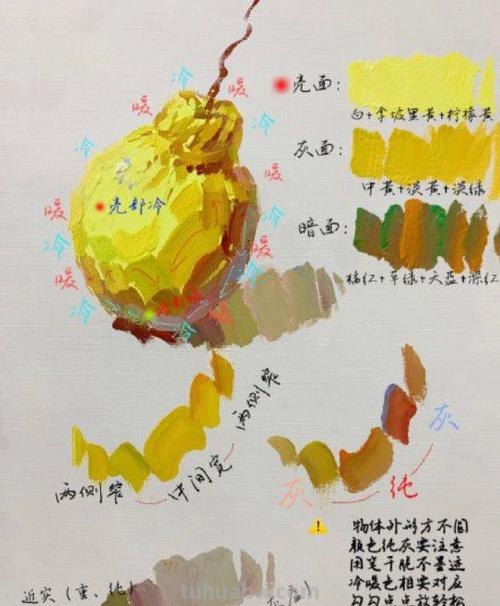 冷
暖
暖
冷
冷
暖
冷
暖
亮部冷
冷
暖
冷
暖
冷
冷
冷
亮面:
白+拿坡里黄+柠檬黄
灰面:
中黄+淡黄+淡绿
暗面:
橘红+草绿+天蓝+深红
两侧窄
中间宽
两侧窄
灰
纯
灰
物体外形方不圆
颜色纯灰要注意
用笔干脆不墨迹
冷暖色相要对应
近实(重、纯)
tuhua